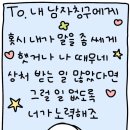 To. 내 남자칭구에게
혹시 내가 말을 좀 쎄게
했거나 나 때무네
상처 받는 일 많았다면
그럴 일 없도록
너가 노력해조